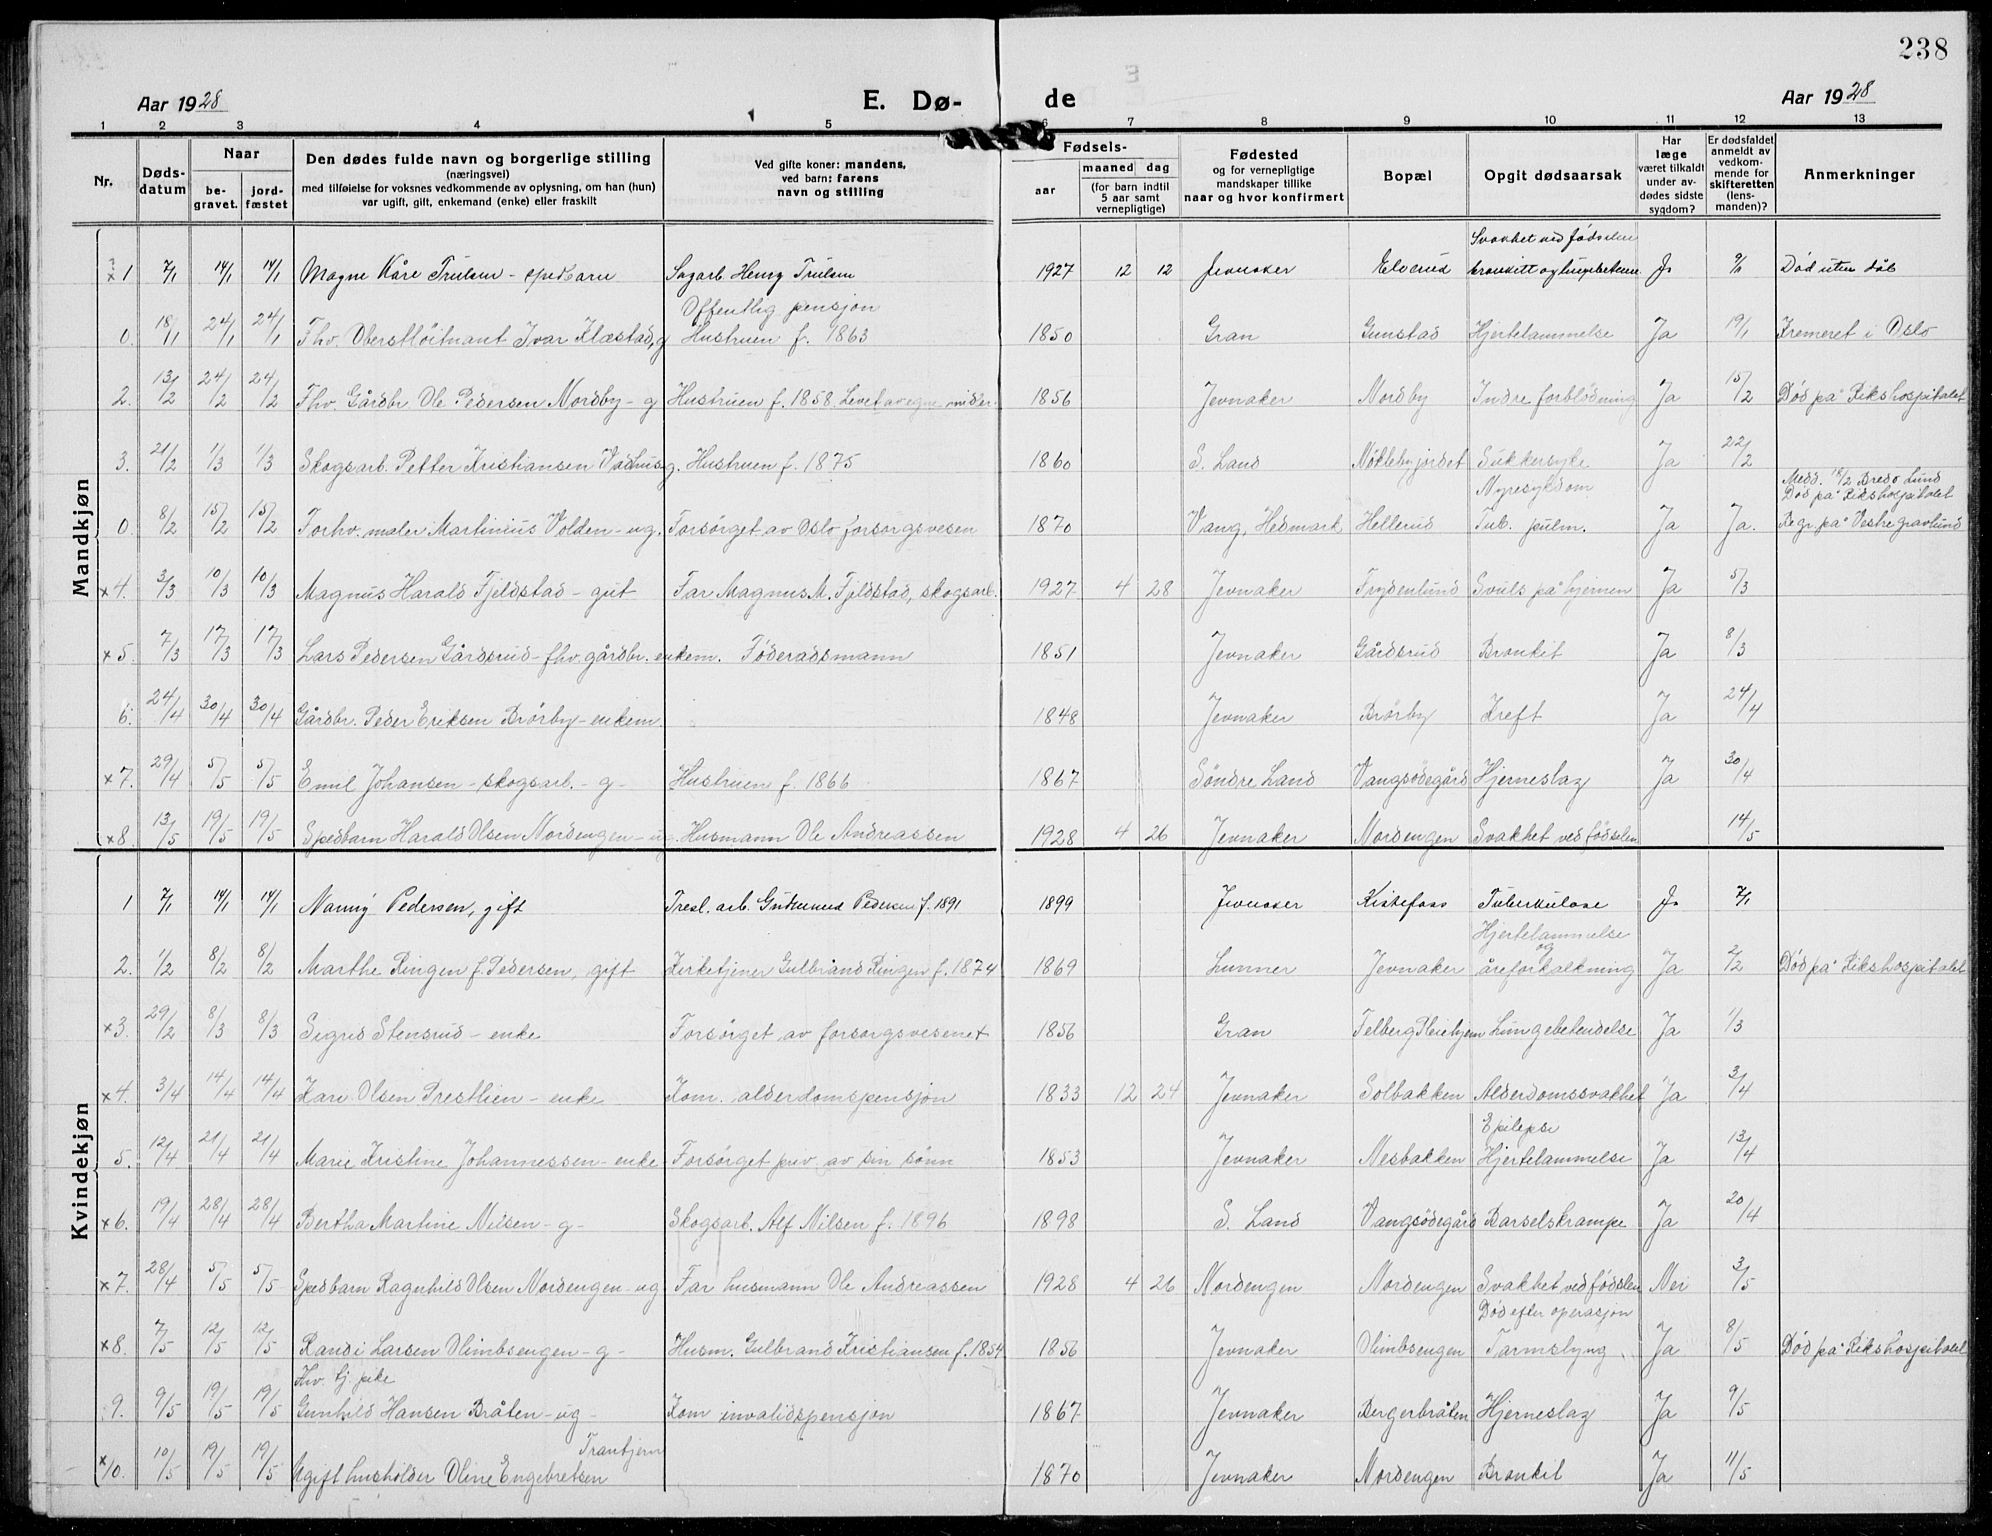 238
Aar 1928
E. Dø-
de
Aar 1928
1 2 3 4 5 6 7 8 9 10 11 12 13
Nr.
Døds-
datum
Naar
be-
gravet.
jord-
fæstet
Den dødes fulde navn og borgerlige stilling
(næringsvei)
med tilføielse for voksnes vedkommende av oplysning, om han (hun)
var ugift, gift, enkemand (enke) eller fraskilt
Ved gifte koner: mandens,
ved barn: farens
navn og stilling
Fødsels-
aar
maaned dag
(for barn indtil
5 aar samt
vernepligtige)
Fødested
og for vernepligtige
mandskaper tillike
naar og hvor konfirmert
Bopæl
Opgit dødsaarsak
Har
læge
været tilkaldt
under av-
dødes sidste
sygdom?
Er dødsfaldet
anmeldt av
vedkom-
mende for
skifteretten
(lens-
manden)?
Anmerkninger
Mandkjøn
Svakhet ved fødselen
x 1 7/1 14/1 14/1 Magne Kåre Trulsen - spedbarn Sagarb. Henry Trulsen 1927 12 12 Jevnaker Elverud bronkitt og lungebetenn. Ja 9/1 Død uten dåb
Offentlig pensjon
0. 18/1 24/1 24/1 Fhv. Oberstløitnant Ivar Klæstad, g Hustruen f. 1863 1850 Gran Gunstad Hjertelammelse Ja 19/1 Kremeret i Oslo
2. 13/2 24/2 24/2 Fhv. Gårdbr. Ole Pedersen Nordby - g Hustruen f. 1858. Levet av egne midler. 1856 Jevnaker Nordby Indre forblödning Ja 15/2 Död på Rikshospitalet
3. 21/2 1/3 1/3 Skogsarb. Petter Kristiansen Vadhus g. Hustruen f. 1875 1860 S. Land Nøklebyjordet Sukkersyke Ja 22/2
Nyresykdom Medd. 18/2 Bredo Lund
Död på Rikshospitalet
0. 8/2 15/2 15/2 Forhv. maler Martinius Volden - ug. Forsörget av Oslo forsorgsvesen 1870 Vang, Hedmark Hellerud Tub. pulm. Ja Ja. Begr. på Vestre gravlund
x4. 3/3 10/3 10/3 Magnus Harald Fjeldstad - gut Far Magnus M. Fjeldstad, skogsarb. 1927 4 28 Jevnaker Frydenlund Svuls på hjernen Ja 5/3
x5. 7/3 17/3 17/3 Lars Pedersen Gårdsrud - fhv. gårdbr. enkem. Föderadsmann 1851 Jevnaker Gårdsrud Bronkit Ja 8/3
6. 24/4 30/4 30/4 Gårdbr. Peder Eriksen Brörby - enkem. 1848 Jevnaker Brörby Kreft Ja 24/4
x7. 29/4 5/5 5/5 Emil Johansen - skogsarb. - g - Hustruen f. 1866 1867 Söndre Land Vangsödegård Hjerneslag Ja 30/4
x8. 13/5 19/5 19/5 Spedbarn Harald Olsen Nordengen - ug Husmann Ole Andreassen 1928 4 26 Jevnaker Nordengen Svakhet ved födselen 14/5
Kvindekjøn
1 7/1 14/1 14/1 Nanny Pedersen, gift Tresl. arb. Gudmund Pedersen f. 1891 1899 Jevnaker Kistefoss Tuberkulose Ja 7/1
Hjertelammelse
og
2. 1/2 8/2 8/2 Marthe Ringen f. Pedersen, gift Kirketjener Gulbrand Ringen f. 1874 1869 Lunner Jevnaker åreforkalkning Ja 2/2 Död på Rikshospitalet
x3. 29/2 8/3 8/3 Sigrid Stensrud - enke Forsörget av forsorgsvesenet 1856 Gran Felberg Pleiehjem Lungebetendelse Ja 1/3
x4. 3/4 14/4 14/4 Kari Olsen Prestlien - enke Kom. alderdomspensjon 1833 12 24 Jevnaker Solbakken Alderdomssvakhet Ja 3/4
Epilepsi
5. 12/4 21/4 21/4 Marie Kristine Johannessen - enke Forsörget priv. av sin sönn 1853 Jevnaker Nesbakken Hjertelammelse Ja 13/4
x6. 19/4 28/4 28/4 Bertha Martine Nilsen - g - Skogsarb. Alf Nilsen f. 1896 1898 S. Land Vangsödegård Barselskrampe Ja 20/4
x7. 28/4 5/5 5/5 Spedbarn Ragnhild Olsen Nordengen - ug Far husmann Ole Andreassen 1928 4 26 Nordengen Nordengen Svakhet ved födselen Nei 3/5
Död efter operasjon
x8. 7/5 12/5 12/5 Randi Larsen Olimbsengen - g - Husm. Gulbrand Kristiansen f. 1854 1856 Jevnaker Olimbsengen Tarmslyng Ja 8/5 Död på Rikshospitalet
Fhv. tj. pike
9. 9/5 19/5 19/5 Gunhild Hansen Bråten - ug - Kom invalidspensjon 1867 Jevnaker Bergerbråten Hjerneslag Ja 9/5
Trantjern
x10. 10/5 19/5 19/5 Ugift husholder Oline Engebretsen 1870 Jevnaker Nordengen Bronkit Ja 11/5